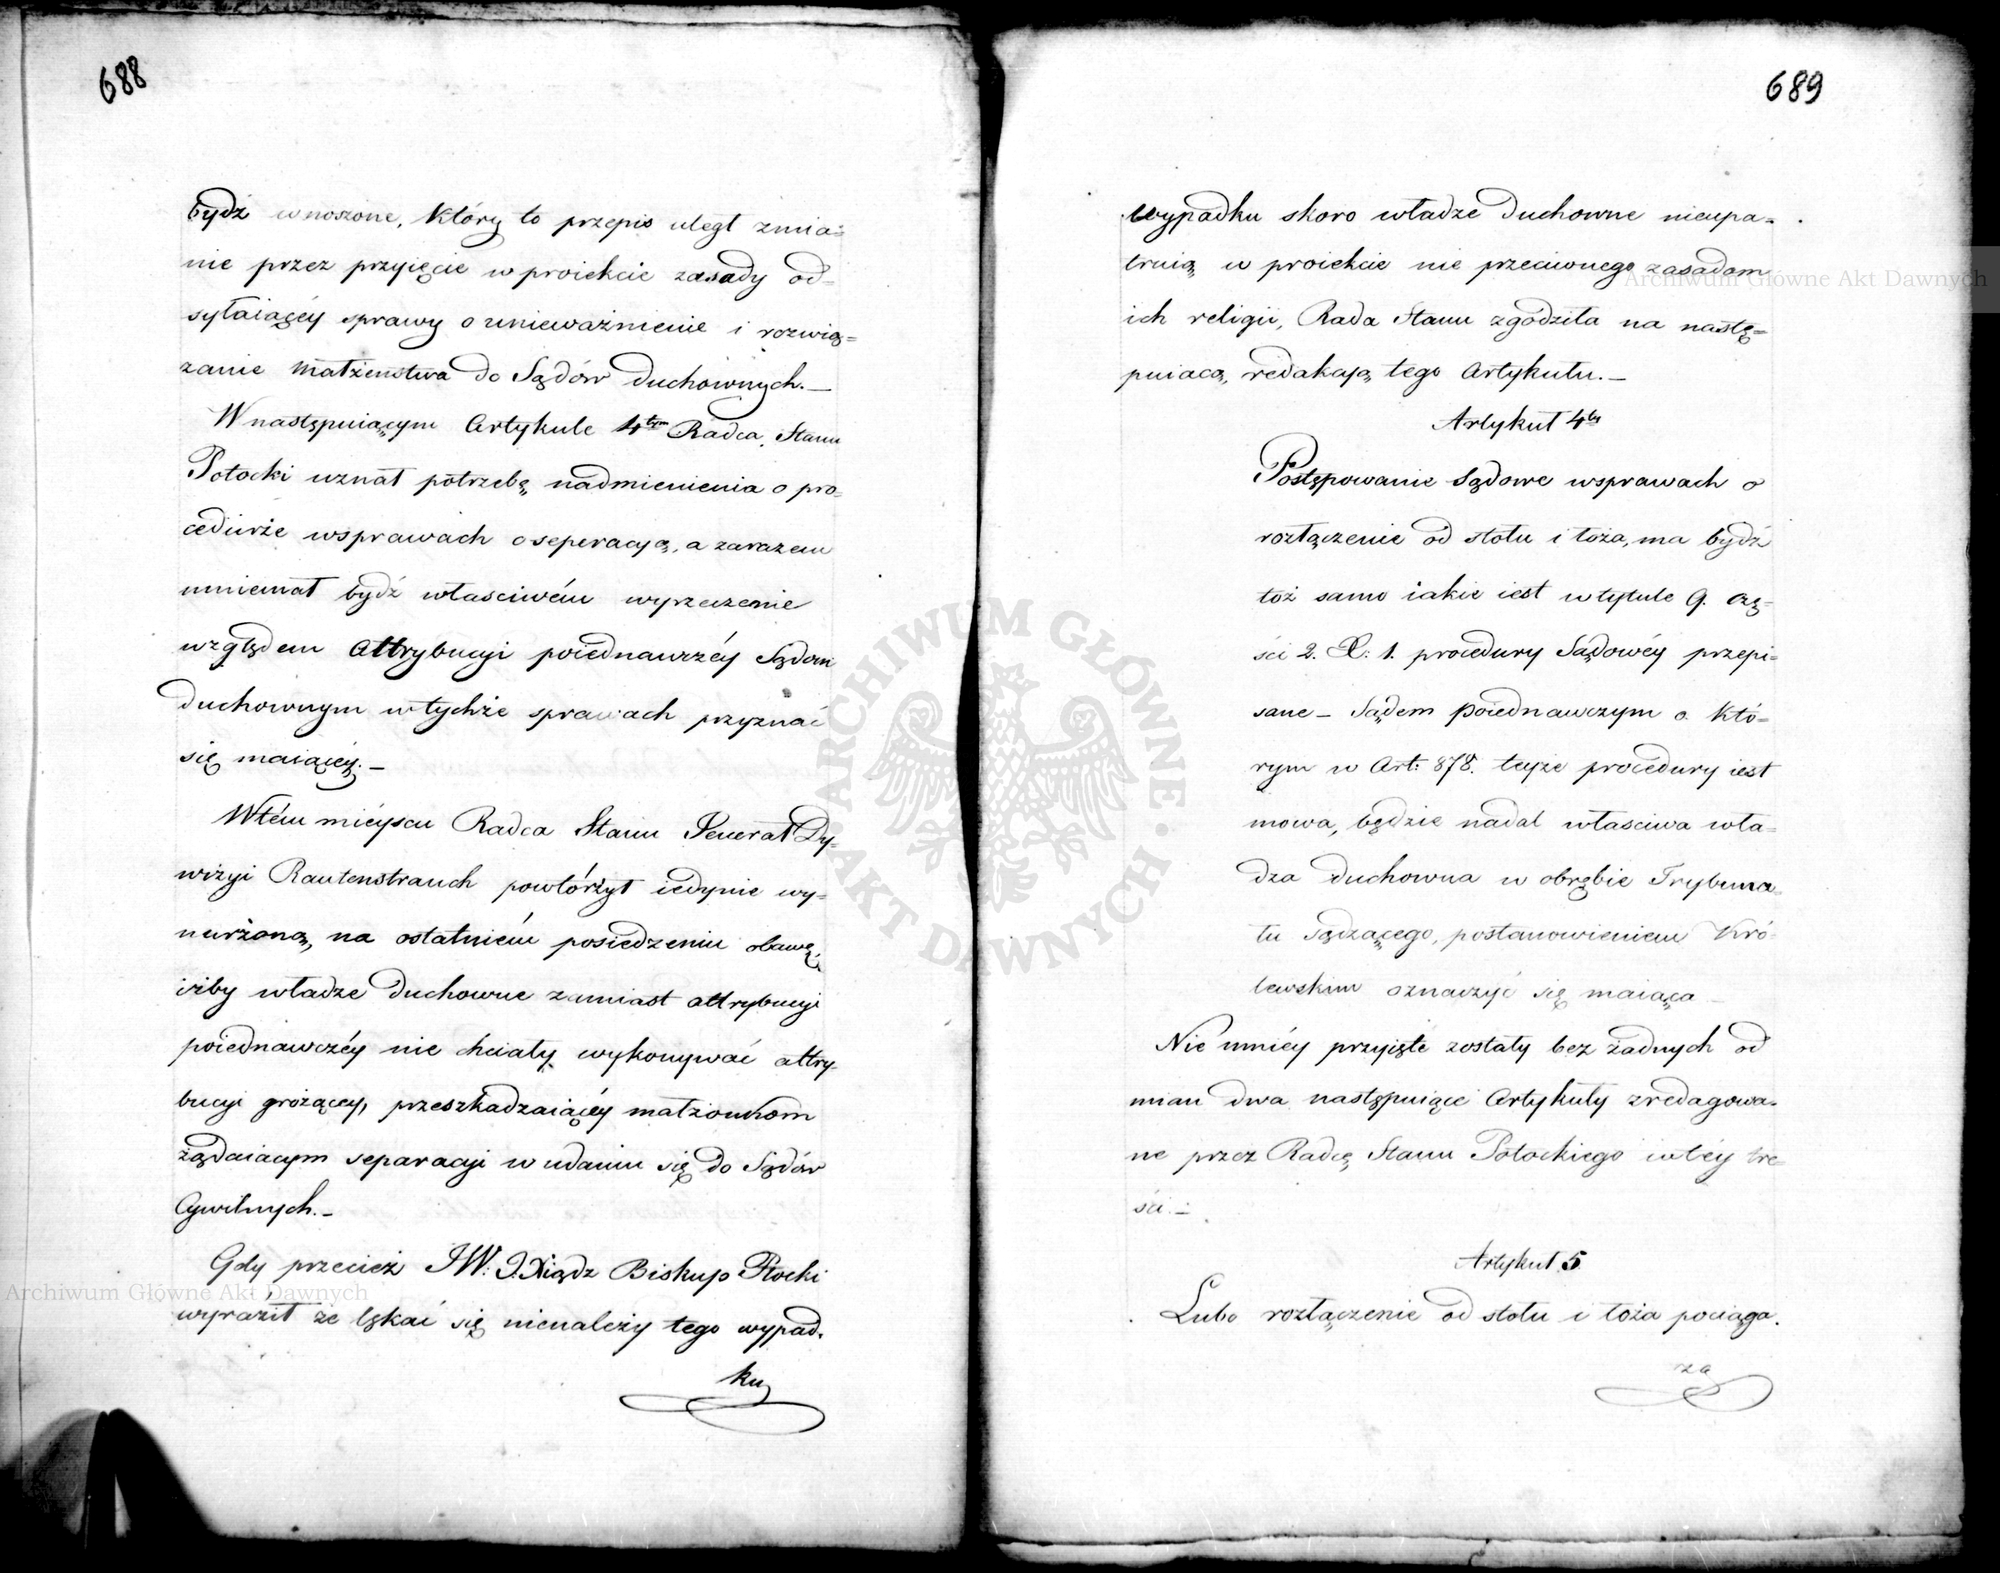 688
bydź wnoszone, który to przepis uległ zmia=
nie przez przyięcie w proiekcie zasady od=
syłaiącéy sprawy o unieważnienie i rozwią=
zanie małżeństwa do Sądów Duchownych. _
W następuiącym Artykule 4tym Radca Stanu
Potocki uznał potrzebę nadmienienia o pro=
cedurże w sprawach o seperacyą, a zarazem
mniemał bydź właściwém wyrzeczenie
względem Attrybucyi poiednawczéy Sądom
duchownym w tychże sprawach przyznać
się maiącéy. _
W tém mieyscu Radca Stanu Jenerał Dy=
wizyi Rautenstrauch powtórżył iedynie wy=
nurżoną na ostatniém posiedzeniu obawę,
iżby władze Duchowne zamiast attrybucyi
poiednawczéy nie chciały wykonywać attry=
bucyi grożącey, przeszkadzaiącéy małżonkom
żądaiacym separacyi w udaniu się do Sądów
Cywilnych. _
Gdy przecież JW: J. Xiądz Biskup Płocki
wyraził że lękać się nienależy tego wypad=
ku
689
wypadku skoro władze Duchowne nieupa=
truią w proiekcie nic przeciwnego zasadom
ich religii, Rada Stanu zgodziła na nastę=
puiacą redakcyą tego Artykułu. _
Artykuł 4ty
Postępowanie Sądowe w sprawach o
rozłączenie od stołu i łoża, ma bydź
toż samo iakie iest w tytule 9. czę=
ści 2. X: 1. procedury Sądowéy przepi=
sane _ Sądem poiednawczym o któ=
rym w Art: 878. teyże procedury iest
mowa, będzie nadal właściwa wła=
dza duchowna w obrębie Trybuna=
łu Sądzącego, postanowieniem Kró=
lewskim oznaczyć się maiąca _
Nie mniéy przyięte zostały bez żadnych od
mian dwa następuiące Artykuły zredagowa=
ne przez Radcę Stanu Potockiego w téy tre=
ści: _
Artykuł 5
Lubo rozłączenie od stołu i łoża pociąga=
za
ARCHIWUM GŁÓWNE AKT DAWNYCH
Archiwum Główne Akt Dawnych
Archiwum Główne Akt Dawnych